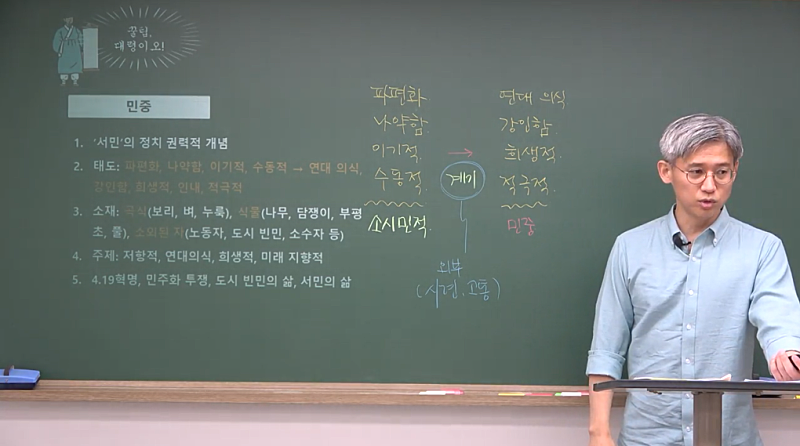 꿀팁,
대령이오!
민중
1. '서민'의 정치 권력적 개념
2. 태도: 파편화, 나약함, 이기적, 수동적 → 연대 의식,
강인함, 희생적, 인내, 적극적
3. 소재: 곡식(보리, 벼, 누룩), 식물(나무, 담쟁이, 부평
초, 풀), 소외된 자(노동자, 도시 빈민, 소수자 등)
4. 주제: 저항적, 연대의식, 희생적, 미래 지향적
5. 4.19혁명, 민주화 투쟁, 도시 빈민의 삶, 서민의 삶
파편화
나약함.
이기적.
수동적.
소시민적.
→
계기
외부
(시련, 고통)
연대 의식
강인함.
희생적.
적극적.
민중